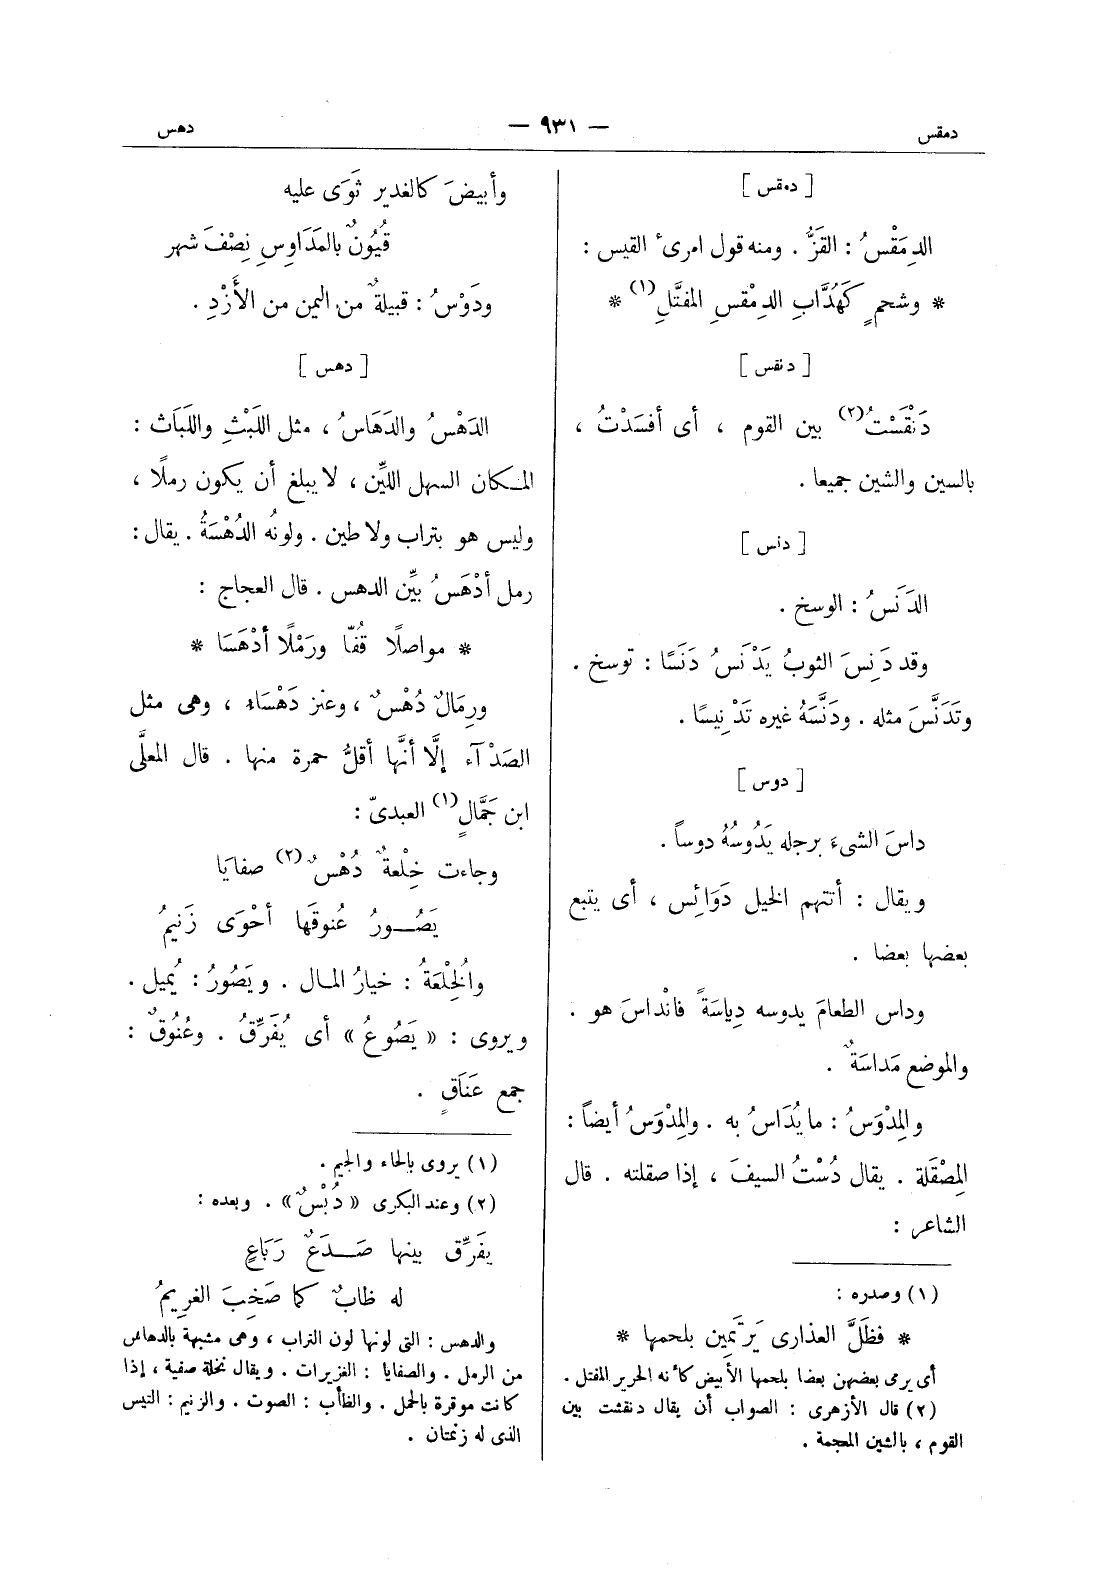 دمقس
— ٩٣١ —
دهس
[ دمقس ]
الدِمَقْسُ : القَزُّ . ومنه قول امرئ القيس :
* وشحمٍ كَهُدَّابِ الدِمَقْسِ المفتَّلِ (١) *
[ دنقس ]
دَنْقَسْتُ (٢) بين القوم ، أى أفسَدْتُ ،
بالسين والشين جميعا .
[ دنس ]
الدَنَسُ : الوسخ .
وقد دَنِسَ الثوبُ يَدْنَسُ دَنَسًا : توسخ .
وتَدَنَّسَ مثله . ودَنَّسَهُ غيره تَدْنِيسًا .
[ دوس ]
داسَ الشىءَ برجله يَدُوسُهُ دوساً .
ويقال : أتتهم الخيل دَوَائِس ، أى يتبع
بعضها بعضا .
وداس الطعامَ يدوسه دِياسَةً فانْداسَ هو .
والموضع مَدَاسَةٌ .
والمِدْوَسُ : ما يُدَاسُ به . والمِدْوَسُ أيضاً :
المِصْقَلة . يقال دُسْتُ السيفَ ، إذا صقلته . قال
الشاعر :
(١) وصدره :
* فظَلَّ العذارى يَرْتَمِين بلحمها *
أى يرمى بعضهن بعضا بلحمها الأبيض كأنه الحرير المفتل .
(٢) قال الأزهرى : الصواب أن يقال دنقشت بين
القوم ، بالشين المعجمة .
وأبيضَ كالغدير ثَوَى عليه
قُيُونٌ بالمَدَاوِسِ نِصْفَ شهر
ودَوْسُ : قبيلةٌ من اليمن من الأَزْدِ .
[ دهس ]
الدَهْسُ والدَهَاسُ ، مثل اللَبْثِ واللَبَاثِ :
المكان السهل الليِّن ، لا يبلغ أن يكون رملًا ،
وليس هو بتراب ولا طين . ولونُه الدُهْسَةُ . يقال :
رمل أدْهَسُ بيِّن الدهس . قال العجاج :
* مواصلًا قُفًّا ورَمْلًا أدْهَسَا *
ورِمَالٌ دُهْسٌ ، وعنز دَهْسَاء ، وهى مثل
الصَدْآء إلَّا أنَّها أقلُّ حمرة منها . قال المعلَّى
ابن جَمَّالٍ (١) العبدىّ :
وجاءت خِلْعةٌ دُهْسٌ (٢) صفايَا
يَصُورُ عُنوقَها أحْوَى زَنيمُ
والخِلْعَةُ : خيارُ المال . ويَصُورُ : يُميل .
ويروى : « يَصُوعُ » أى يُفَرِّقُ . وعُنُوقٌ :
جمع عَنَاقٍ .
(١) يروى بالحاء والجيم .
(٢) وعند البكرى « دُبْسٌ » . وبعده :
يفَرِّق بينها صَدَعٌ رَبَاعٍ
له ظابٌ كما صَخِبَ الغريمُ
والدهس : التى لونها لون التراب ، وهى مشبهة بالدهاس
من الرمل . والصفايا : الغزيرات . ويقال نخلة صفية ، إذا
كانت موقرة بالحمل . والظأب : الصوت . والزنيم : التيس
الذى له زنمتان .